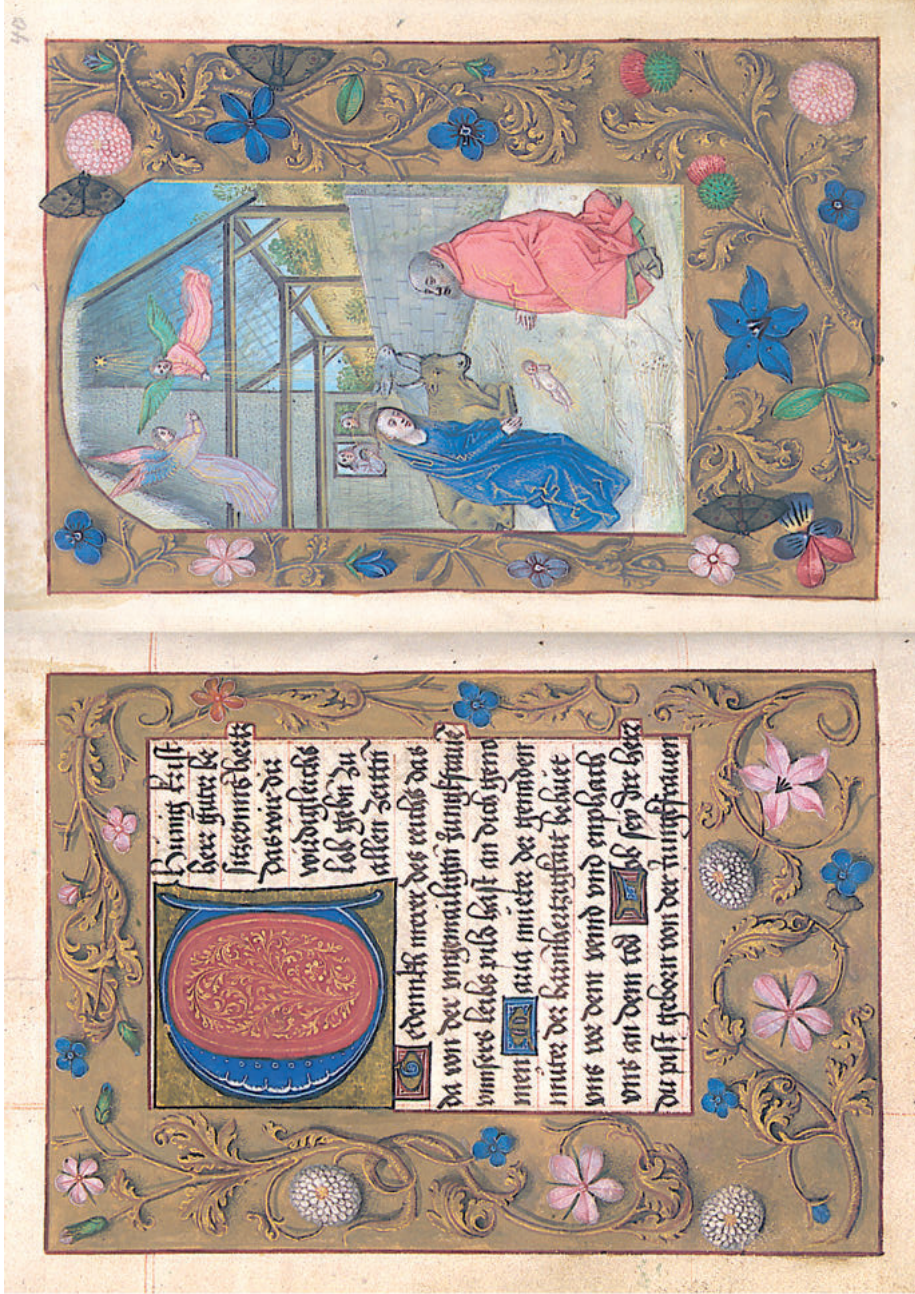 40
O künig krist
herr güter be
sicz vnnser hertz
das wir dir
wirdigleich
lob geben zu
allen zeiten
Gedennkh merer des rechts das
da von der vngemailigten Junkfrawen
vnnsers leibs pild hast an dich geno
men Maria mueter der genaden
mueter der barmhertzigkait behuet
vnns vor dem veind vnd emphach
vnns an dem tod Lob sey dir herr
du pist geborn von der Junkfrauen